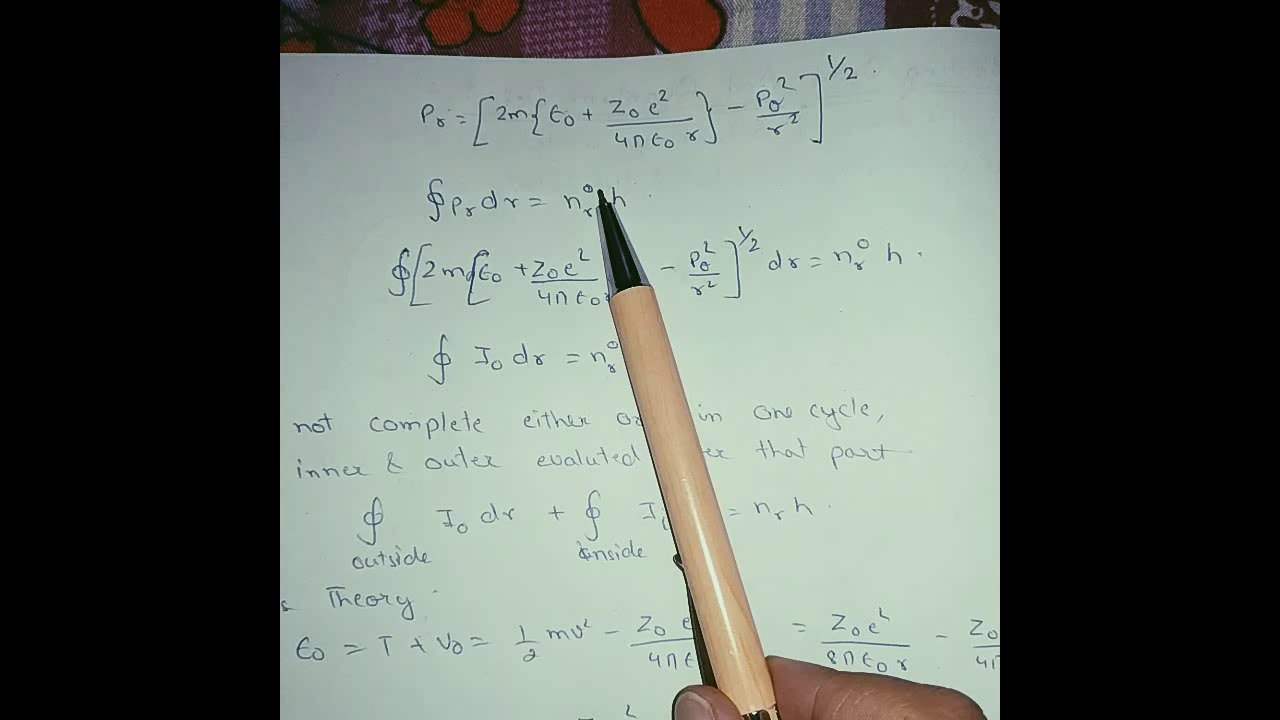 Pr = [2m{ϵ0 + Z0 e²/4π ϵ0 r} − Pθ²/r²]^1/2.
∮Pr dr = nr⁰ h.
∮[2m{ϵ0 + Z0 e²/4π ϵ0 − Pθ²/r²]^1/2 dr = nr⁰ h.
∮ I0 dr = nr⁰
not complete either in one cycle,
inner & outer evaluted that part
∮ I0 dr + ∮ = nr h.
outside inside
Theory.
ϵ0 = T + V0 = 1/2 mv² − Z0 e / 4π = Z0 e² / 8π ϵ0 r − Z0